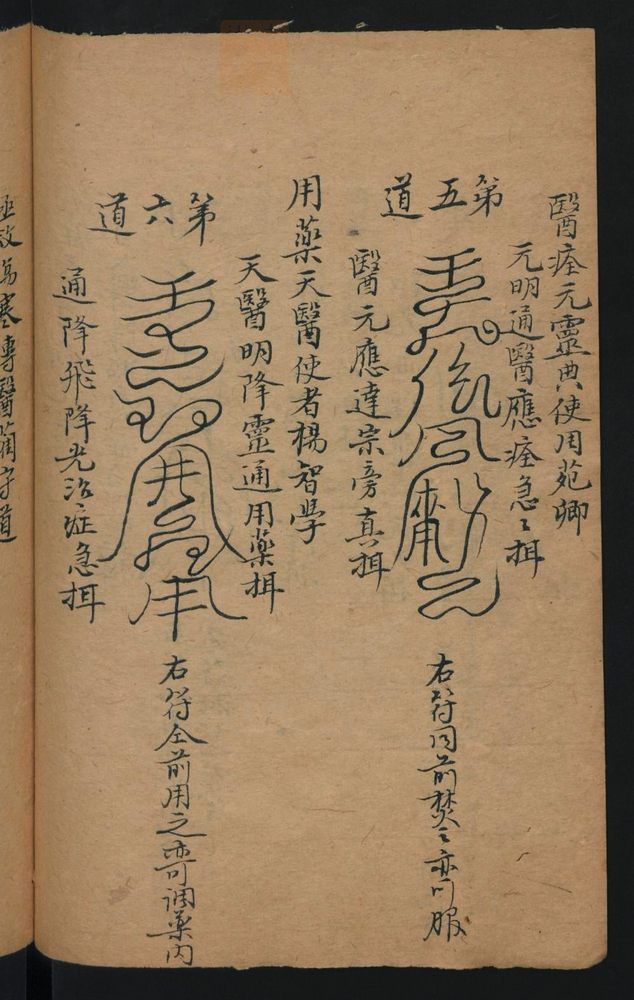 醫痊元靈典使用苑卿
元明通醫應痊急〻揖
第五道
右符同前焚之亦可服
醫元應達宗旁真揖
用藥天醫使者楊智學
天醫明降靈通用藥揖
第六道
右符仝前用之亦可調藥内
通降飛降光治症急揖
專醫